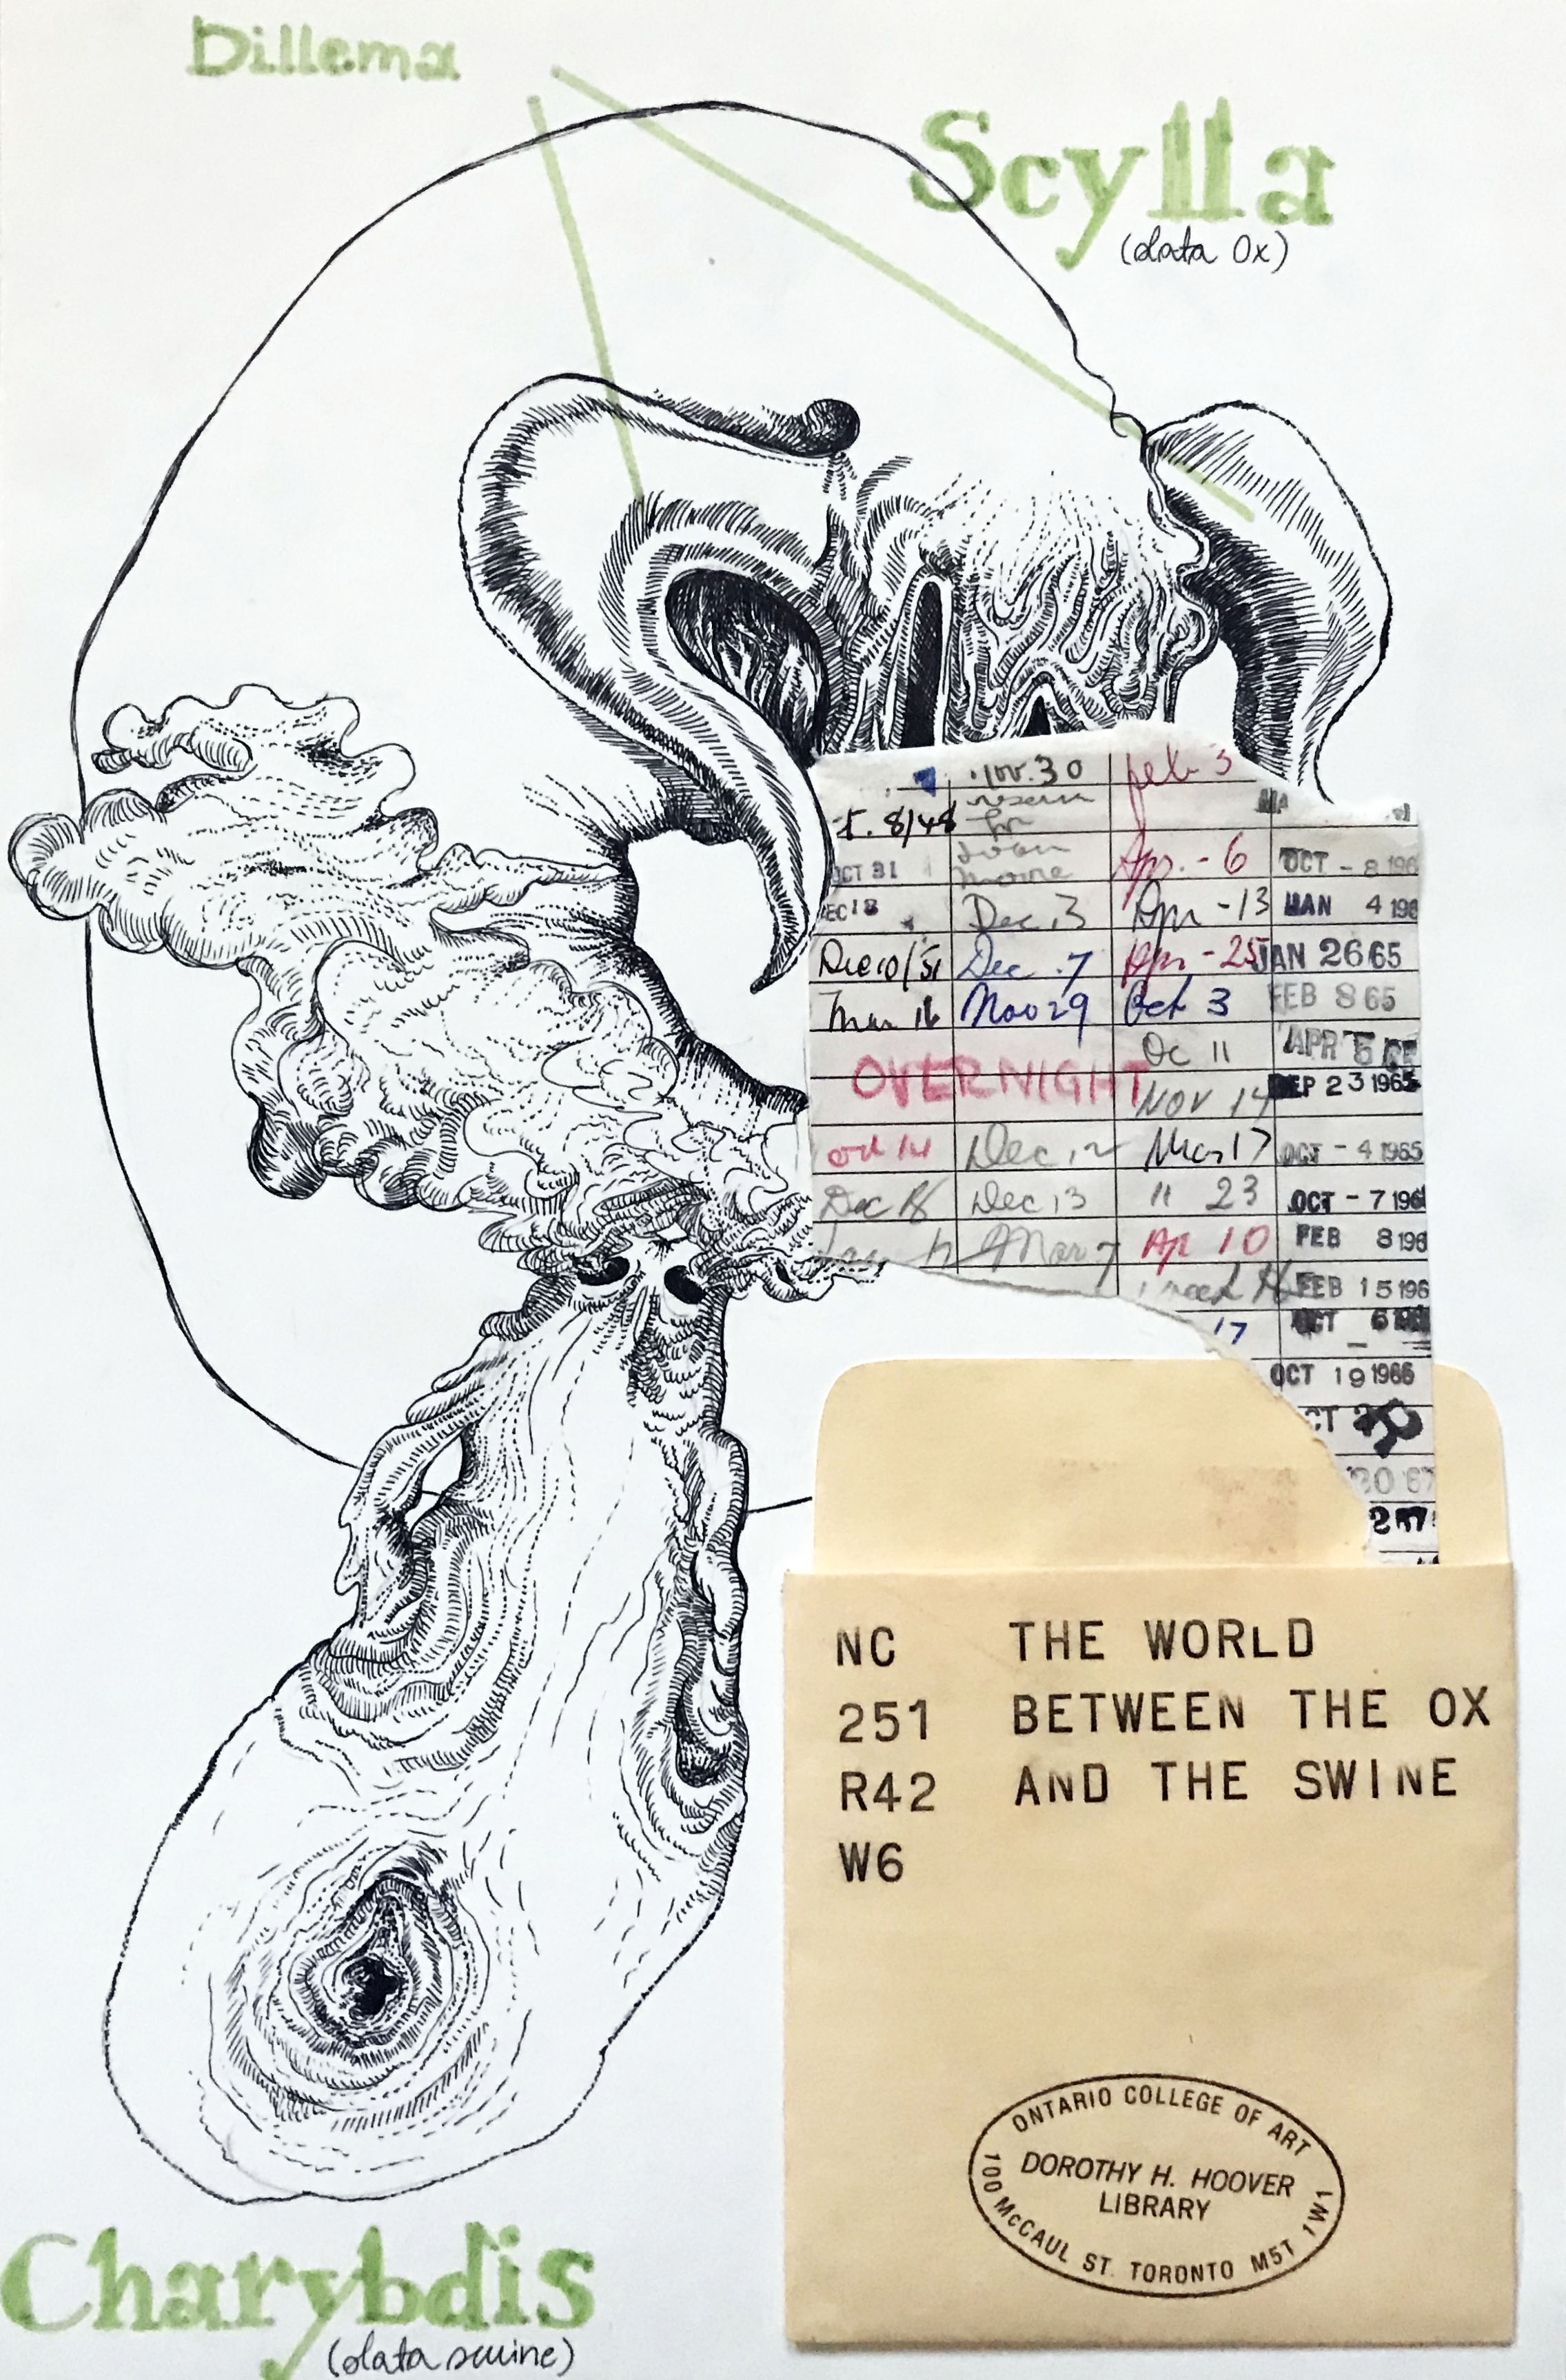 Dillema
Scylla
(data Ox)
Nov. 30 feb 3
8/48
Apr. - 6 OCT - 8 196
OCT 31
Dec 3 Apr - 13 JAN 4 196
EC 18
Dec 10/51 Dec 7 Apr - 25 JAN 26 65
Mar 16 Nov 29 Oct 3 FEB 8 65
Oc 11 APR
OVERNIGHT
NOV 14 SEP 23 1965
Oct 14 Dec 12 Mar 17 OCT - 4 1965
Dec 18 Dec 13 " 23 OCT - 7 196
Mar 7 Ap 10 FEB 8 196
FEB 15 196
17 OCT 6
OCT 19 1966
CT
20 67
NC THE WORLD
251 BETWEEN THE OX
R42 AND THE SWINE
W6
ONTARIO COLLEGE OF ART
DOROTHY H. HOOVER
LIBRARY
100 McCAUL ST. TORONTO M5T 1W1
Charybdis
(data swine)